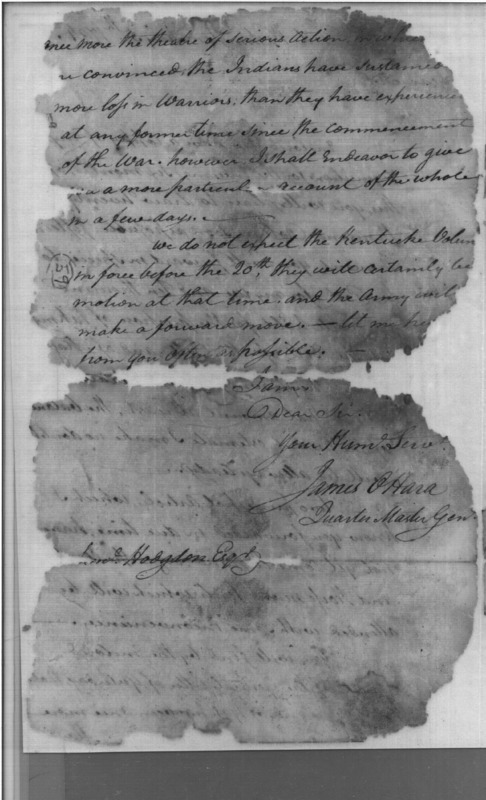 once more the theatre of serious Action, in
convinced the Indians have sustained
more loss in Warriors, than they have experienced
at any former time since the commencement
of the War. however I shall Endeavor to give
a more particular account of the whole
in a few days.
we do not expect the Kentucke Volun
in force before the 20th, they will certainly be
motion at that time. and the Army will
make a forward move. — let me
from you often as possible. —
I am
Dear Sir
Your Humb. Servt.
James O'Hara
Quarter Master Genl.
Hodgdon Esqr.